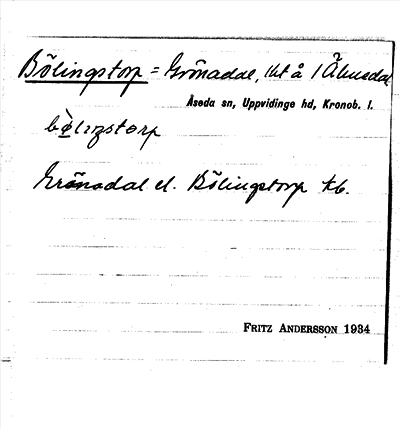 Bölingstorp = Grönadal, lht å 1 Åbusdal
Åseda sn, Uppvidinge hd, Kronob. l.
bø̀lıŋstorp
Grönadal el. Bölingstorp tb.
FRITZ ANDERSSON 1934